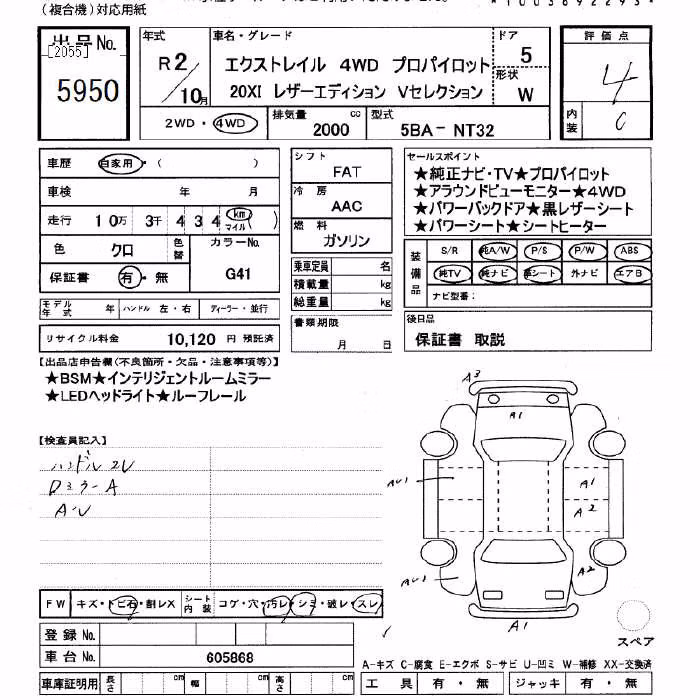 (複合機)対応用紙
出品No.
[2055]
5950
年式
R2/10月
車名・グレード
エクストレイル 4WD プロパイロット
20XI レザーエディション Vセレクション
ドア
5
形状
W
評価点
4
内装
C
2WD・4WD
排気量
2000 cc
型式
5BA− NT32
車歴
自家用・( )
車検 年 月
走行 10万 3千 4 3 4 km マイル
色 クロ
色替
カラーNo.
G41
保証書 有・無
モデル年式 年
ハンドル 左・右
ディーラー・並行
リサイクル料金 10,120 円 預託済
シフト
FAT
冷房
AAC
燃料
ガソリン
乗車定員 名
積載量 kg
総重量 kg
書類期限
月 日
セールスポイント
★純正ナビ・TV★プロパイロット
★アラウンドビューモニター★4WD
★パワーバックドア★黒レザーシート
★パワーシート★シートヒーター
装備品
S/R 純A/W P/S P/W ABS
純TV 純ナビ 革シート 外ナビ エアB
ナビ型番:
後日品
保証書 取説
【出品店申告欄(不良箇所・欠品・注意事項等)】
★BSM★インテリジェントルームミラー
★LEDヘッドライト★ルーフレール
【検査員記入】
ハンドル スレ
Dミラー A
A・U
A3
A1
AU1
A1
A2
AU1
A2
A1
スペア
FW
キズ・トビ石・割レX
シート内装
コゲ・穴・汚レ・シミ・破レ・スレ
登録 No.
車台 No.
605868
車庫証明用
長さ cm
幅 cm
高さ cm
A-キズ C-腐食 E-エクボ S-サビ U-凹ミ W-補修 XX-交換済
工具 有・無
ジャッキ 有・無